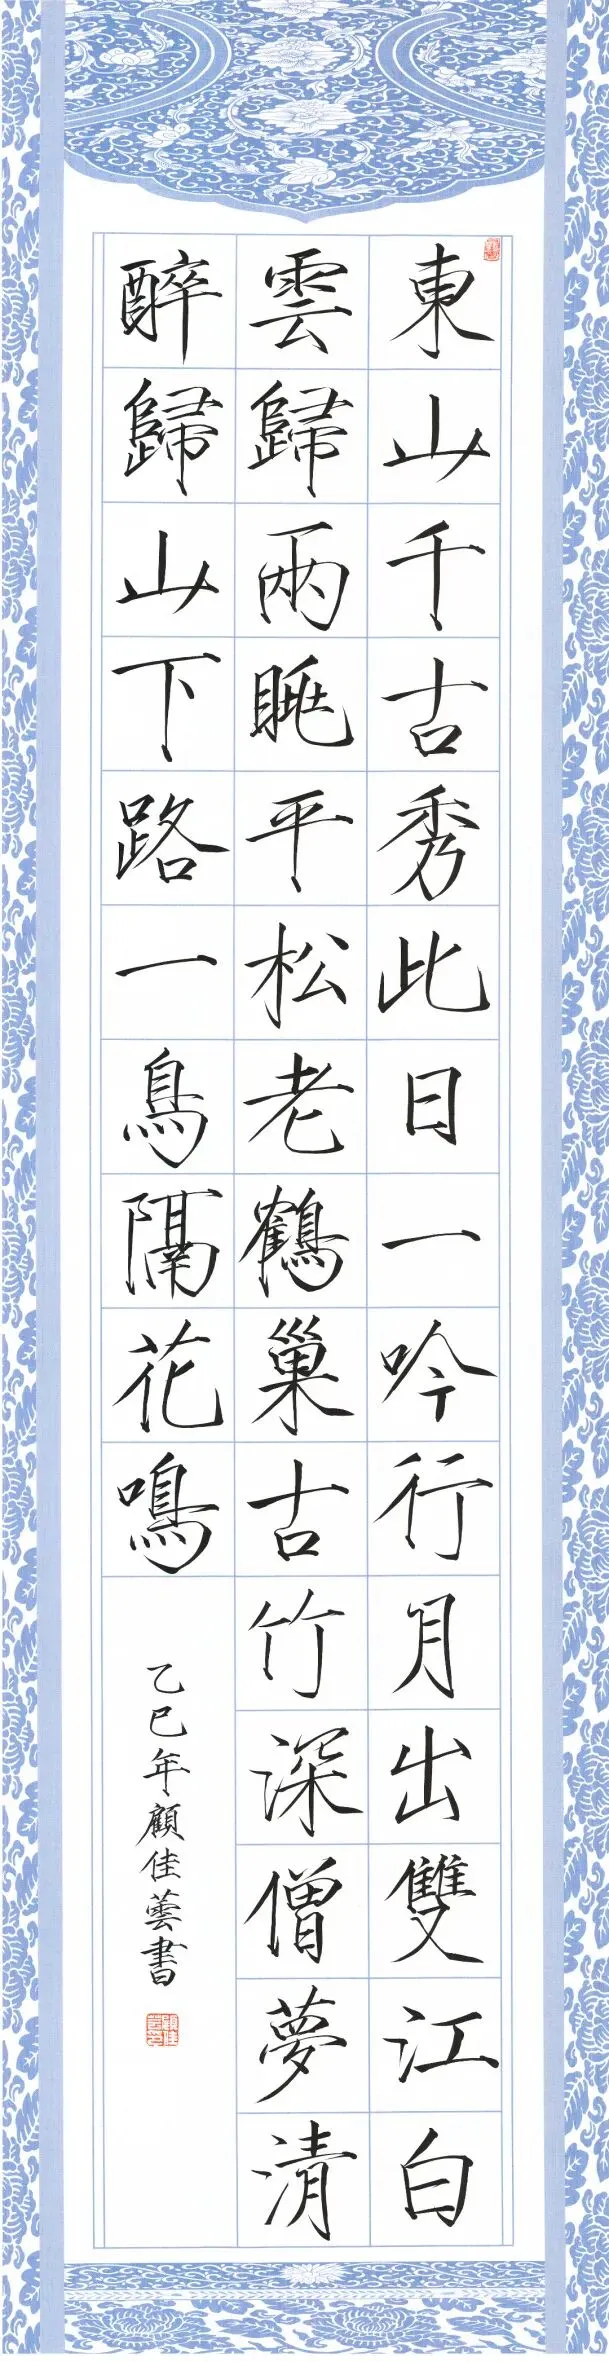 東山千古秀此日一吟行月出雙江白
雲歸兩眺平松老鶴巢古竹深僧夢清
醉歸山下路一鳥隔花鳴
乙巳年顧佳蕓書